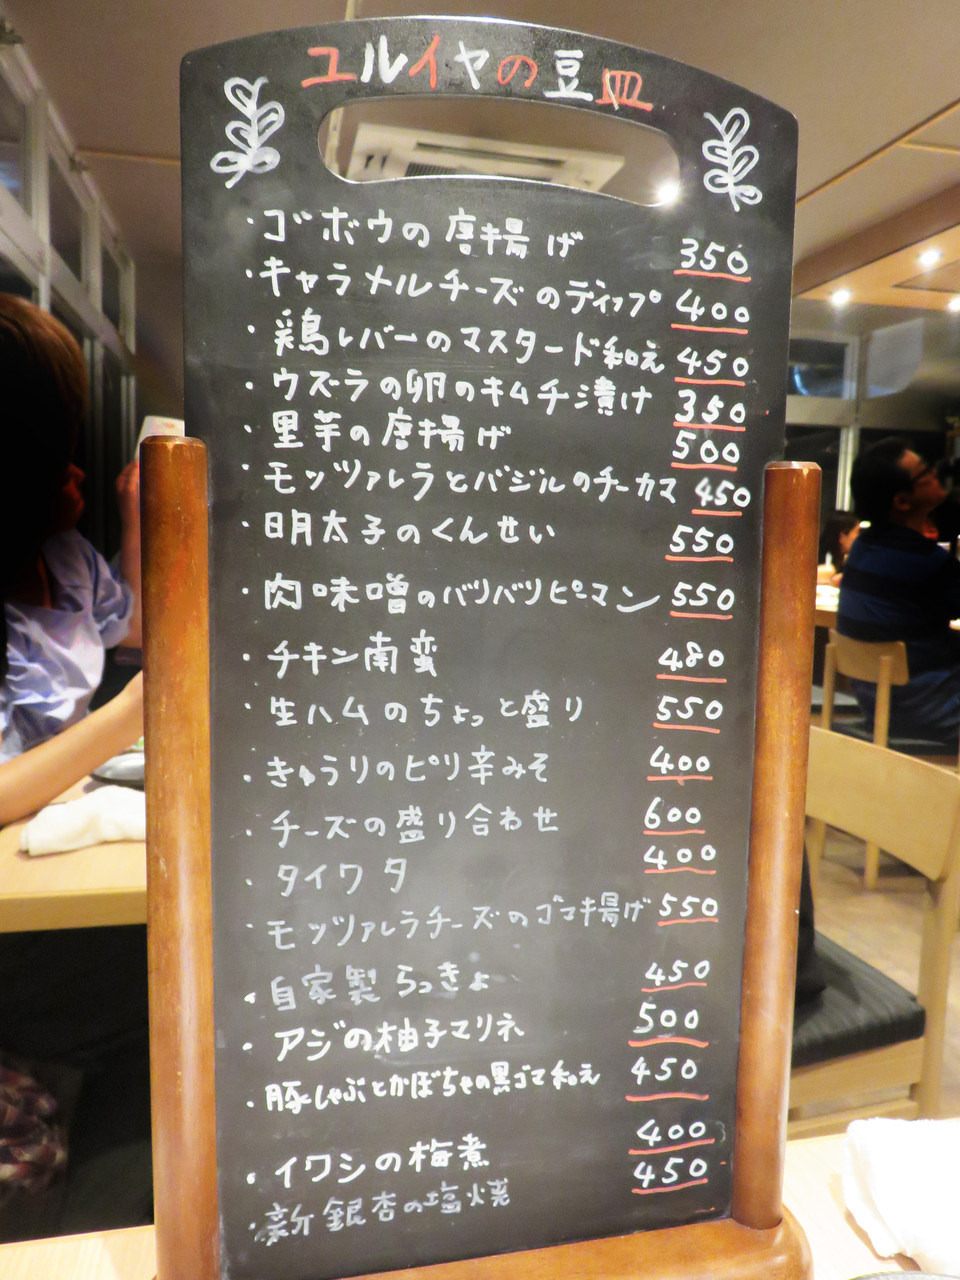 ユルイヤの豆皿
・ゴボウの唐揚げ 350
・キャラメルチーズのディップ 400
・鶏レバーのマスタード和え 450
・ウズラの卵のキムチ漬け 350
・里芋の唐揚げ 500
・モッツァレラとバジルのチーカマ 450
・明太子のくんせい 550
・肉味噌のバリバリピーマン 550
・チキン南蛮 480
・生ハムのちょっと盛り 550
・きゅうりのピリ辛みそ 400
・チーズの盛り合わせ 600
・タイワタ 400
・モッツァレラチーズのゴマ揚げ 550
・自家製らっきょ 450
・アジの柚子マリネ 500
・豚しゃぶとかぼちゃの黒ゴマ和え 450
・イワシの梅煮 400
・新銀杏の塩焼 450